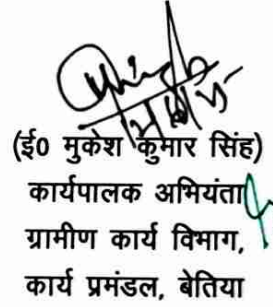 (ई0 मुकेश कुमार सिंह)
कार्यपालक अभियंता
ग्रामीण कार्य विभाग,
कार्य प्रमंडल, बेतिया